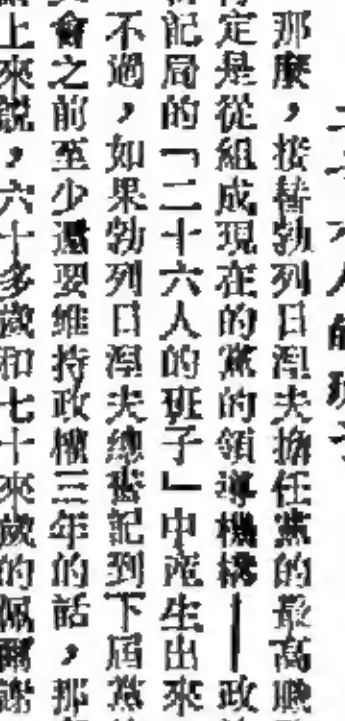 二十六人的班子
那麼，接替勃列日湼夫擔任黨的最高職
定是從組成現在的黨的領導機構——政
記局的「二十六人的班子」中產生出來
不過，如果勃列日湼夫總書記到下屆黨
會之前至少還要維持政權三年的話，那
上來說，六十多歲和七十來歲的佩爾謝